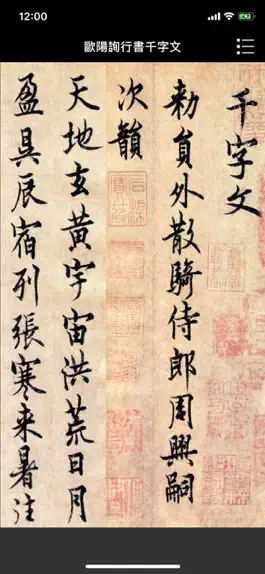 12:00
歐陽詢行書千字文
千字文
勑員外散騎侍郎周興嗣
次韻
天地玄黃宇宙洪荒日月
盈昃辰宿列張寒来暑往